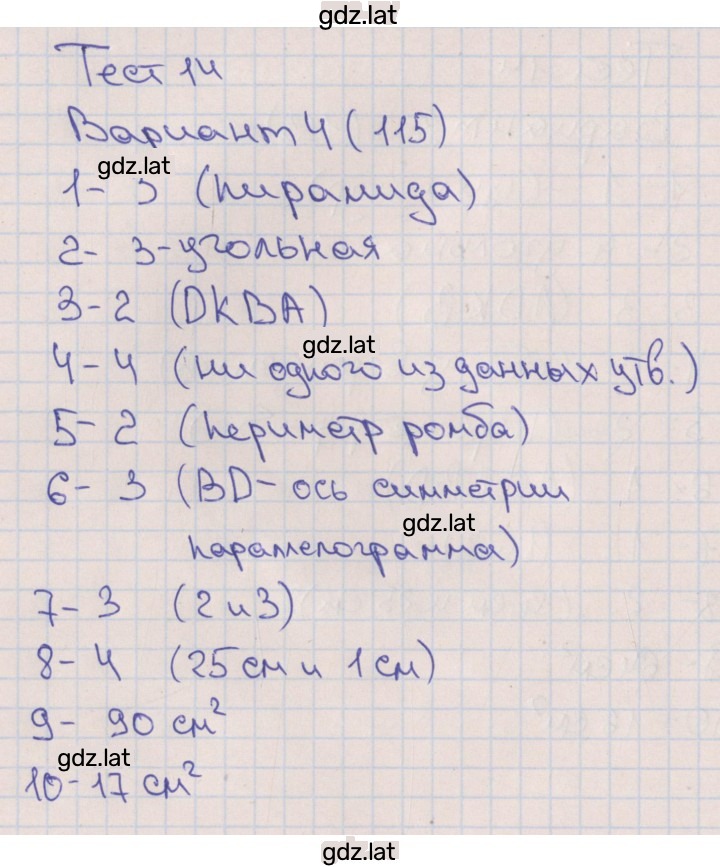 gdz.lat
Тест 14
Вариант 4 (115)
gdz.lat
1- 3 (пирамида)
2- 3-угольная
3-2 (DKBA)
gdz.lat
4-4 (ни одного из данных утв.)
5-2 (периметр ромба)
6- 3 (BD- ось симметрии
gdz.lat
параллелограмма)
7-3 (2 и 3)
8-4 (25 см и 1 см)
9- 90 см²
gdz.lat
10-17 см²
gdz.lat